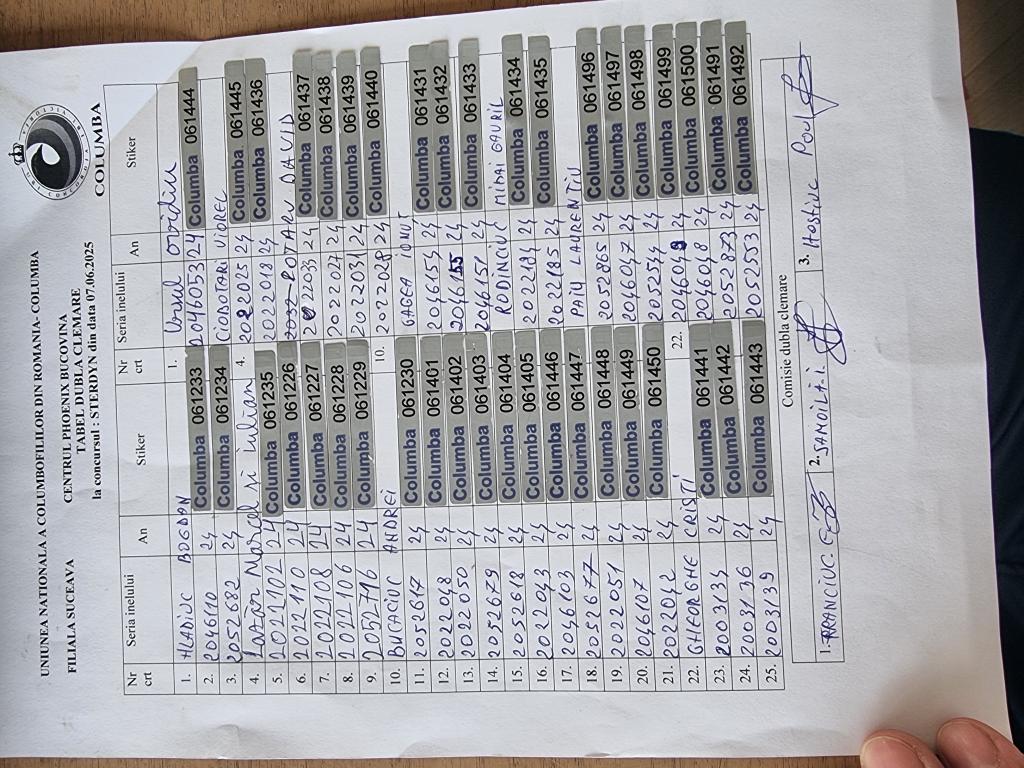 UNIUNEA NATIONALA A COLUMBOFILILOR DIN ROMANIA- COLUMBA
FILIALA SUCEAVA CENTRUL PHOENIX BUCOVINA
TABEL DUBLA CLEMARE
la concursul : STERDYN din data 07.06.2025
COLUMBA
Nr crt Seria inelului An Stiker Nr crt Seria inelului An Stiker
1. HLADIUC BOGDAN 1. Ursul Ovidiu
2. 2046110 24 Columba 061233 2046053 24 Columba 061444
3. 2052682 24 Columba 061234 CIOBOTARI VIOREL
4. Lazăr Marcel și Iulian 4. 2022025 24 Columba 061445
5. 2022102 24 Columba 061235 2022018 24 Columba 061436
6. 2022110 24 Columba 061226 DAVID
7. 2022108 24 Columba 061227 2022033 24 Columba 061437
8. 2022106 24 Columba 061228 2022027 24 Columba 061438
9. 2052716 24 Columba 061229 2022031 24 Columba 061439
10. BUCACIUC ANDREI 10. 2022028 24 Columba 061440
11. 2052617 24 Columba 061230 GAGEA IONUT
12. 2022048 24 Columba 061401 2046154 24 Columba 061431
13. 2022050 24 Columba 061402 2046155 24 Columba 061432
14. 2052679 24 Columba 061403 2046151 24 Columba 061433
15. 2052618 24 Columba 061404 RODINCIUC MIHAI GAVRIL
16. 2022043 24 Columba 061405 2022184 24 Columba 061434
17. 2046103 24 Columba 061446 2022185 24 Columba 061435
18. 2052677 24 Columba 061447 LAURENTIU
19. 2022051 24 Columba 061448 2052865 24 Columba 061496
20. 2046107 24 Columba 061449 2046047 24 Columba 061497
21. 2022042 24 Columba 061450 2052544 24 Columba 061498
22. GHEORGHE CRISTI 22. 2046049 24 Columba 061499
23. 2003134 24 Columba 061441 2046048 24 Columba 061500
24. 2003136 24 Columba 061442 2052873 24 Columba 061491
25. 2003139 24 Columba 061443 205253 24 Columba 061492
Comisie dubla clemare
1. 2. SAMOILA I. 3. Hostiuc Paul